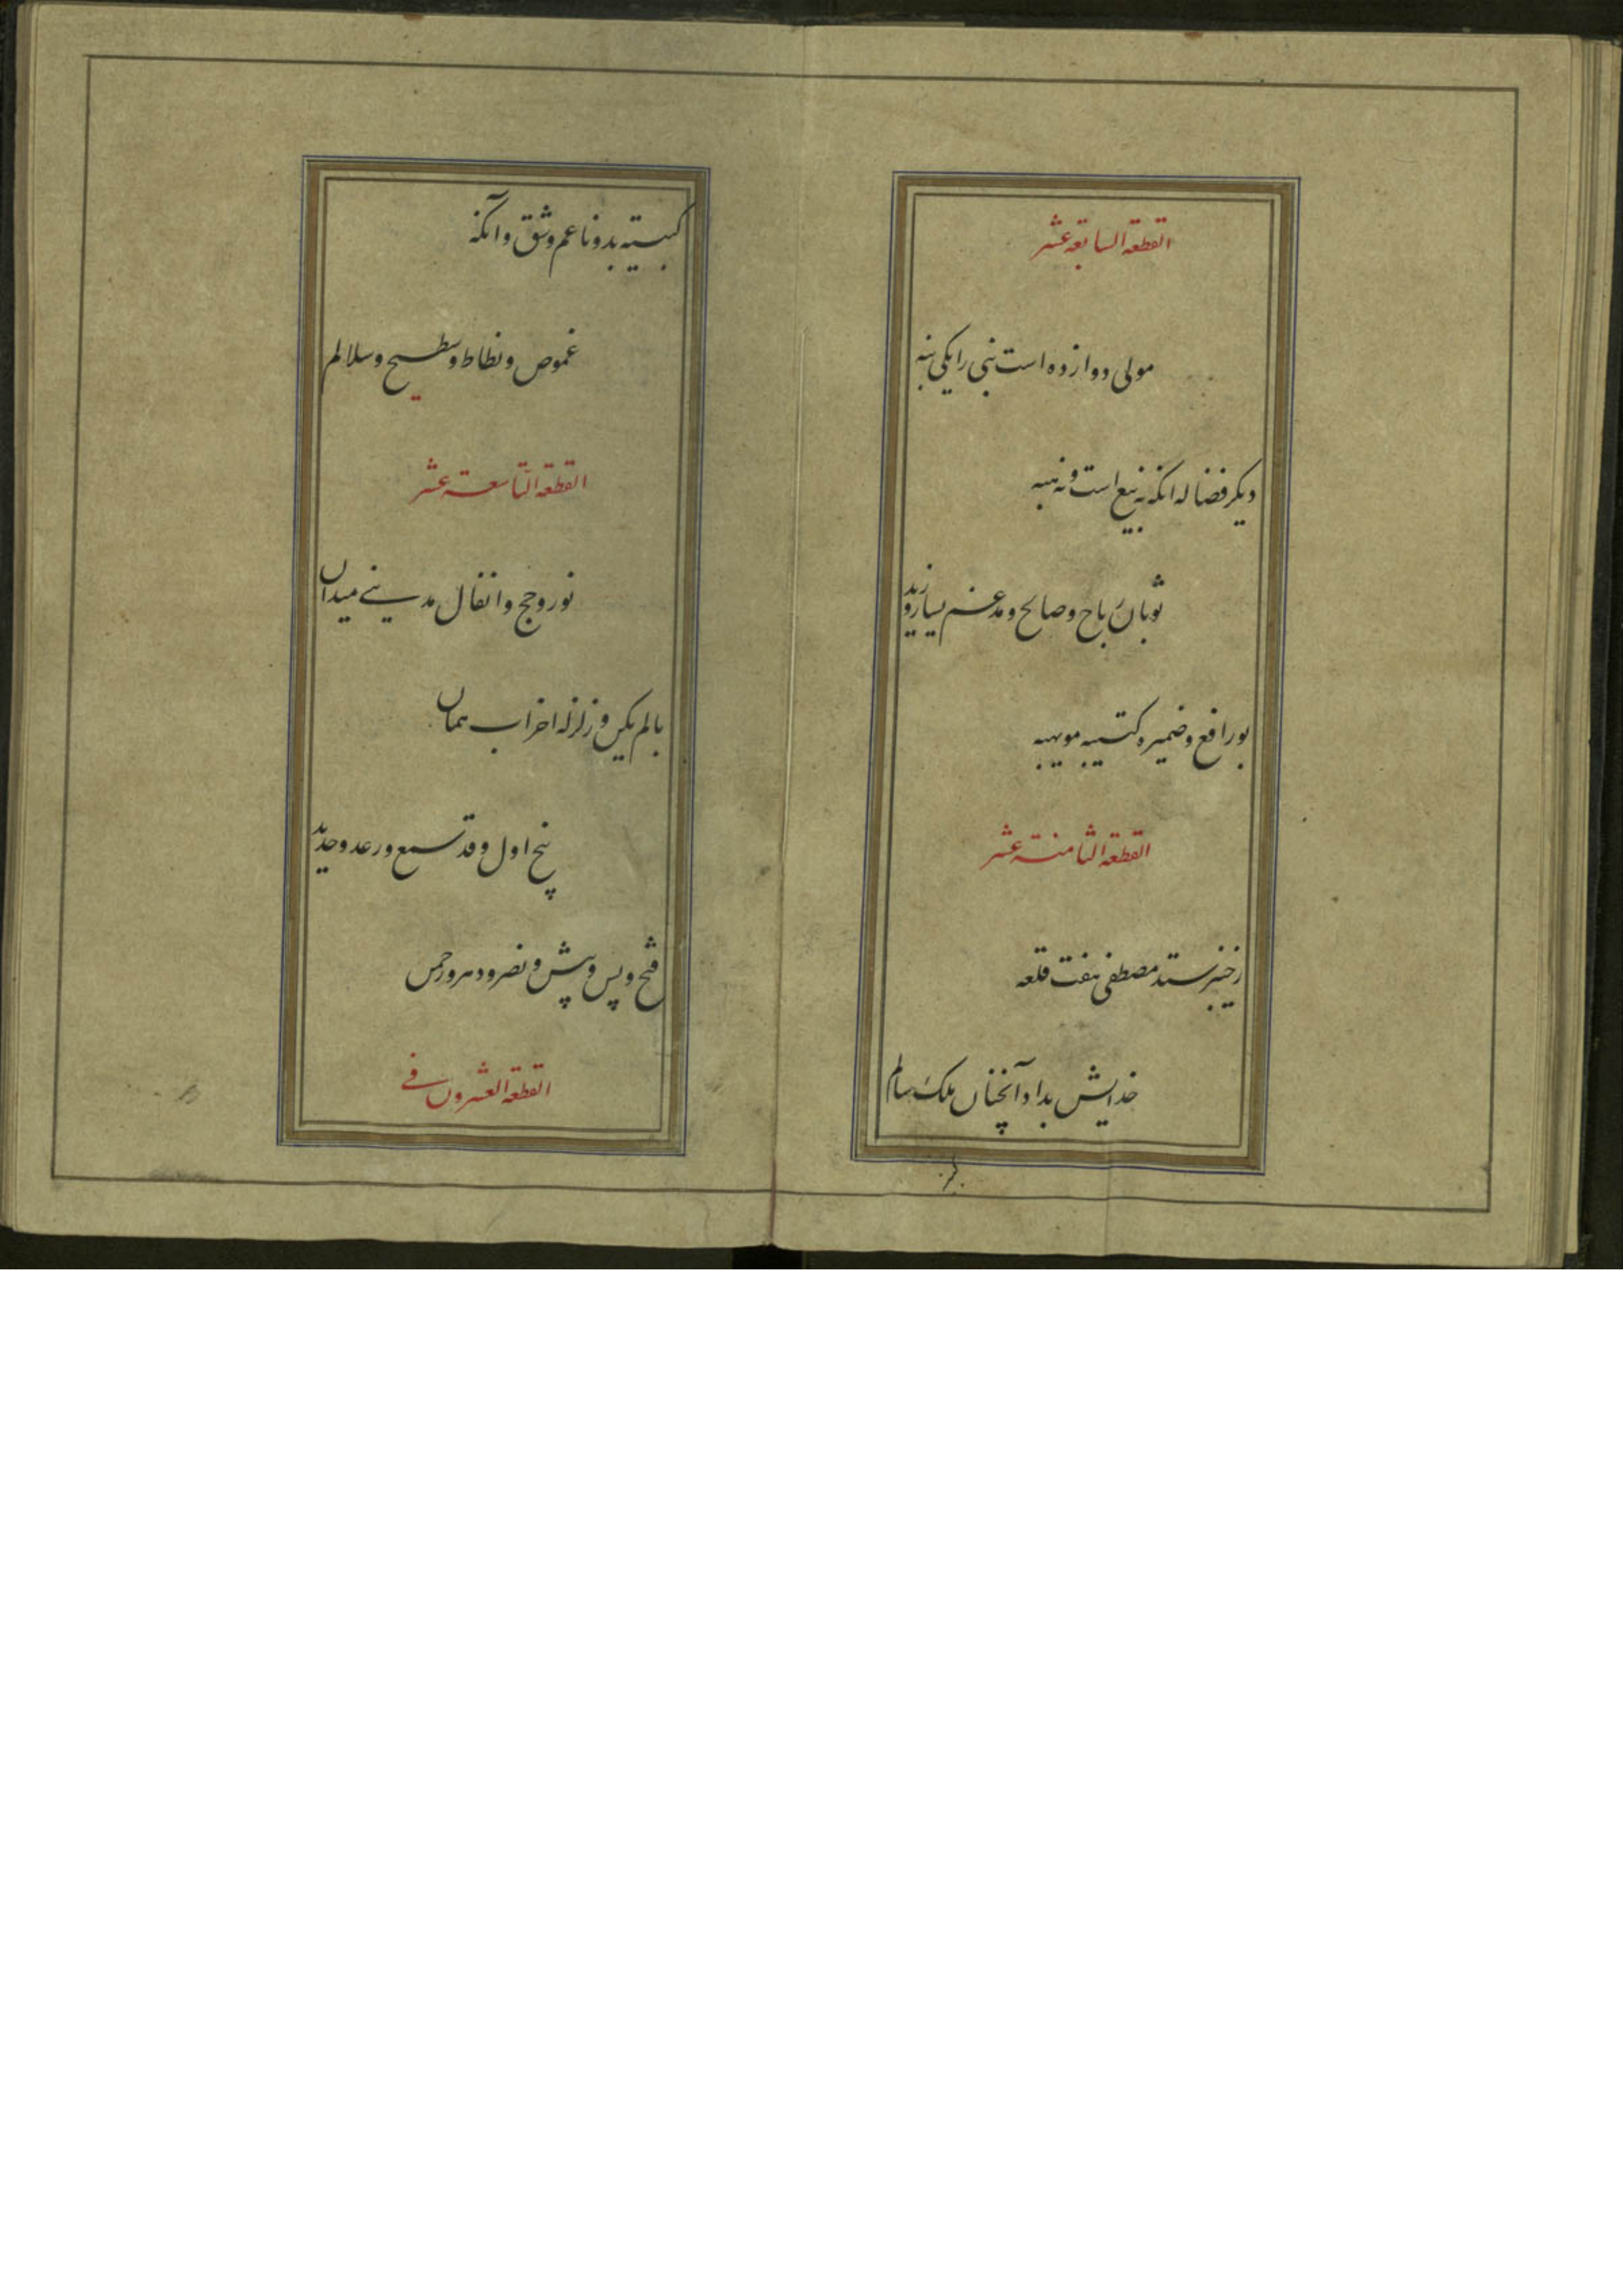 القطعة السابعة عشر
مولی دوازده است نبی را یکی بنه
دیگر فضاله انکه نه بیع است و نه هبه
ثوبان رباح و صالح و مدعم یسار و زید
بو رافع و ضمیره کتیبه مویهبه
القطعة الثامنة عشر
ز خیبر ستد مصطفی هفت قلعه
خدایش بداد آنچنان ملک سالم
کتیبه بد و ناعم و شق و آنگه
غموص و نطاط و سطیح و سلالم
القطعة التاسعة عشر
نور و حج و انفال مدینی میدان
با لم یکن و زلزله احزاب همان
پنج اول و قد سمع و رعد و حدید
فتح و پس و پیش و نصر و دهر و رحمن
القطعة العشرون فی